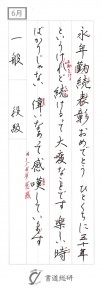 6月
永年勤続表彰おめでとう ひとくちに三十年
というけれど続けるって大変なことです 楽しい時
ばかりじゃない 偉いなあって感嘆しています
一般 後級
書道総研